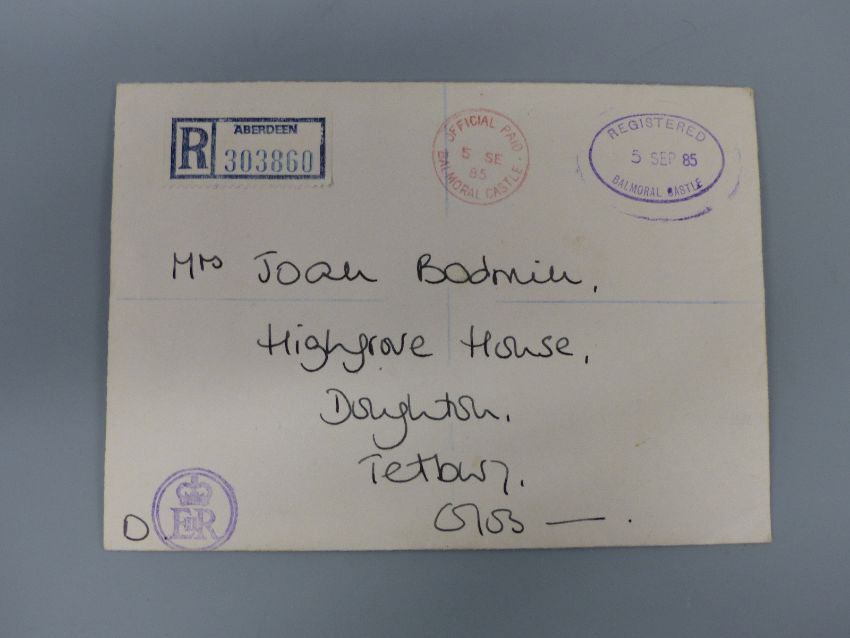 R ABERDEEN
303860
OFFICIAL PAID
5 SE
85
BALMORAL CASTLE
REGISTERED
5 SEP 85
BALMORAL CASTLE
Mrs Joan Bodmin,
Highgrove House,
Doughton,
Tetbury,
Glos — .
D
EIIR